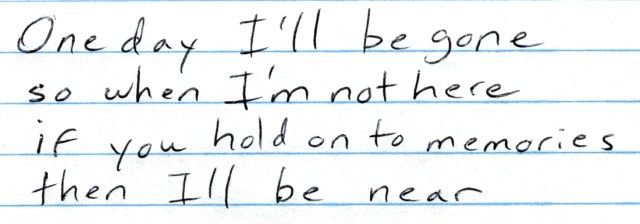 One day I'll be gone
so when I'm not here
if you hold on to memories
then I'll be near